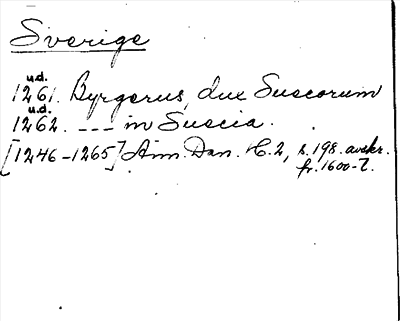 Sverige
u.d.
1261. Byrgerus, dux Suecorum
u.d.
1262. --- in Suecia.
[1246-1265] Ann. Dan. H.2, s.198. avskr.
fr. 1600-t.